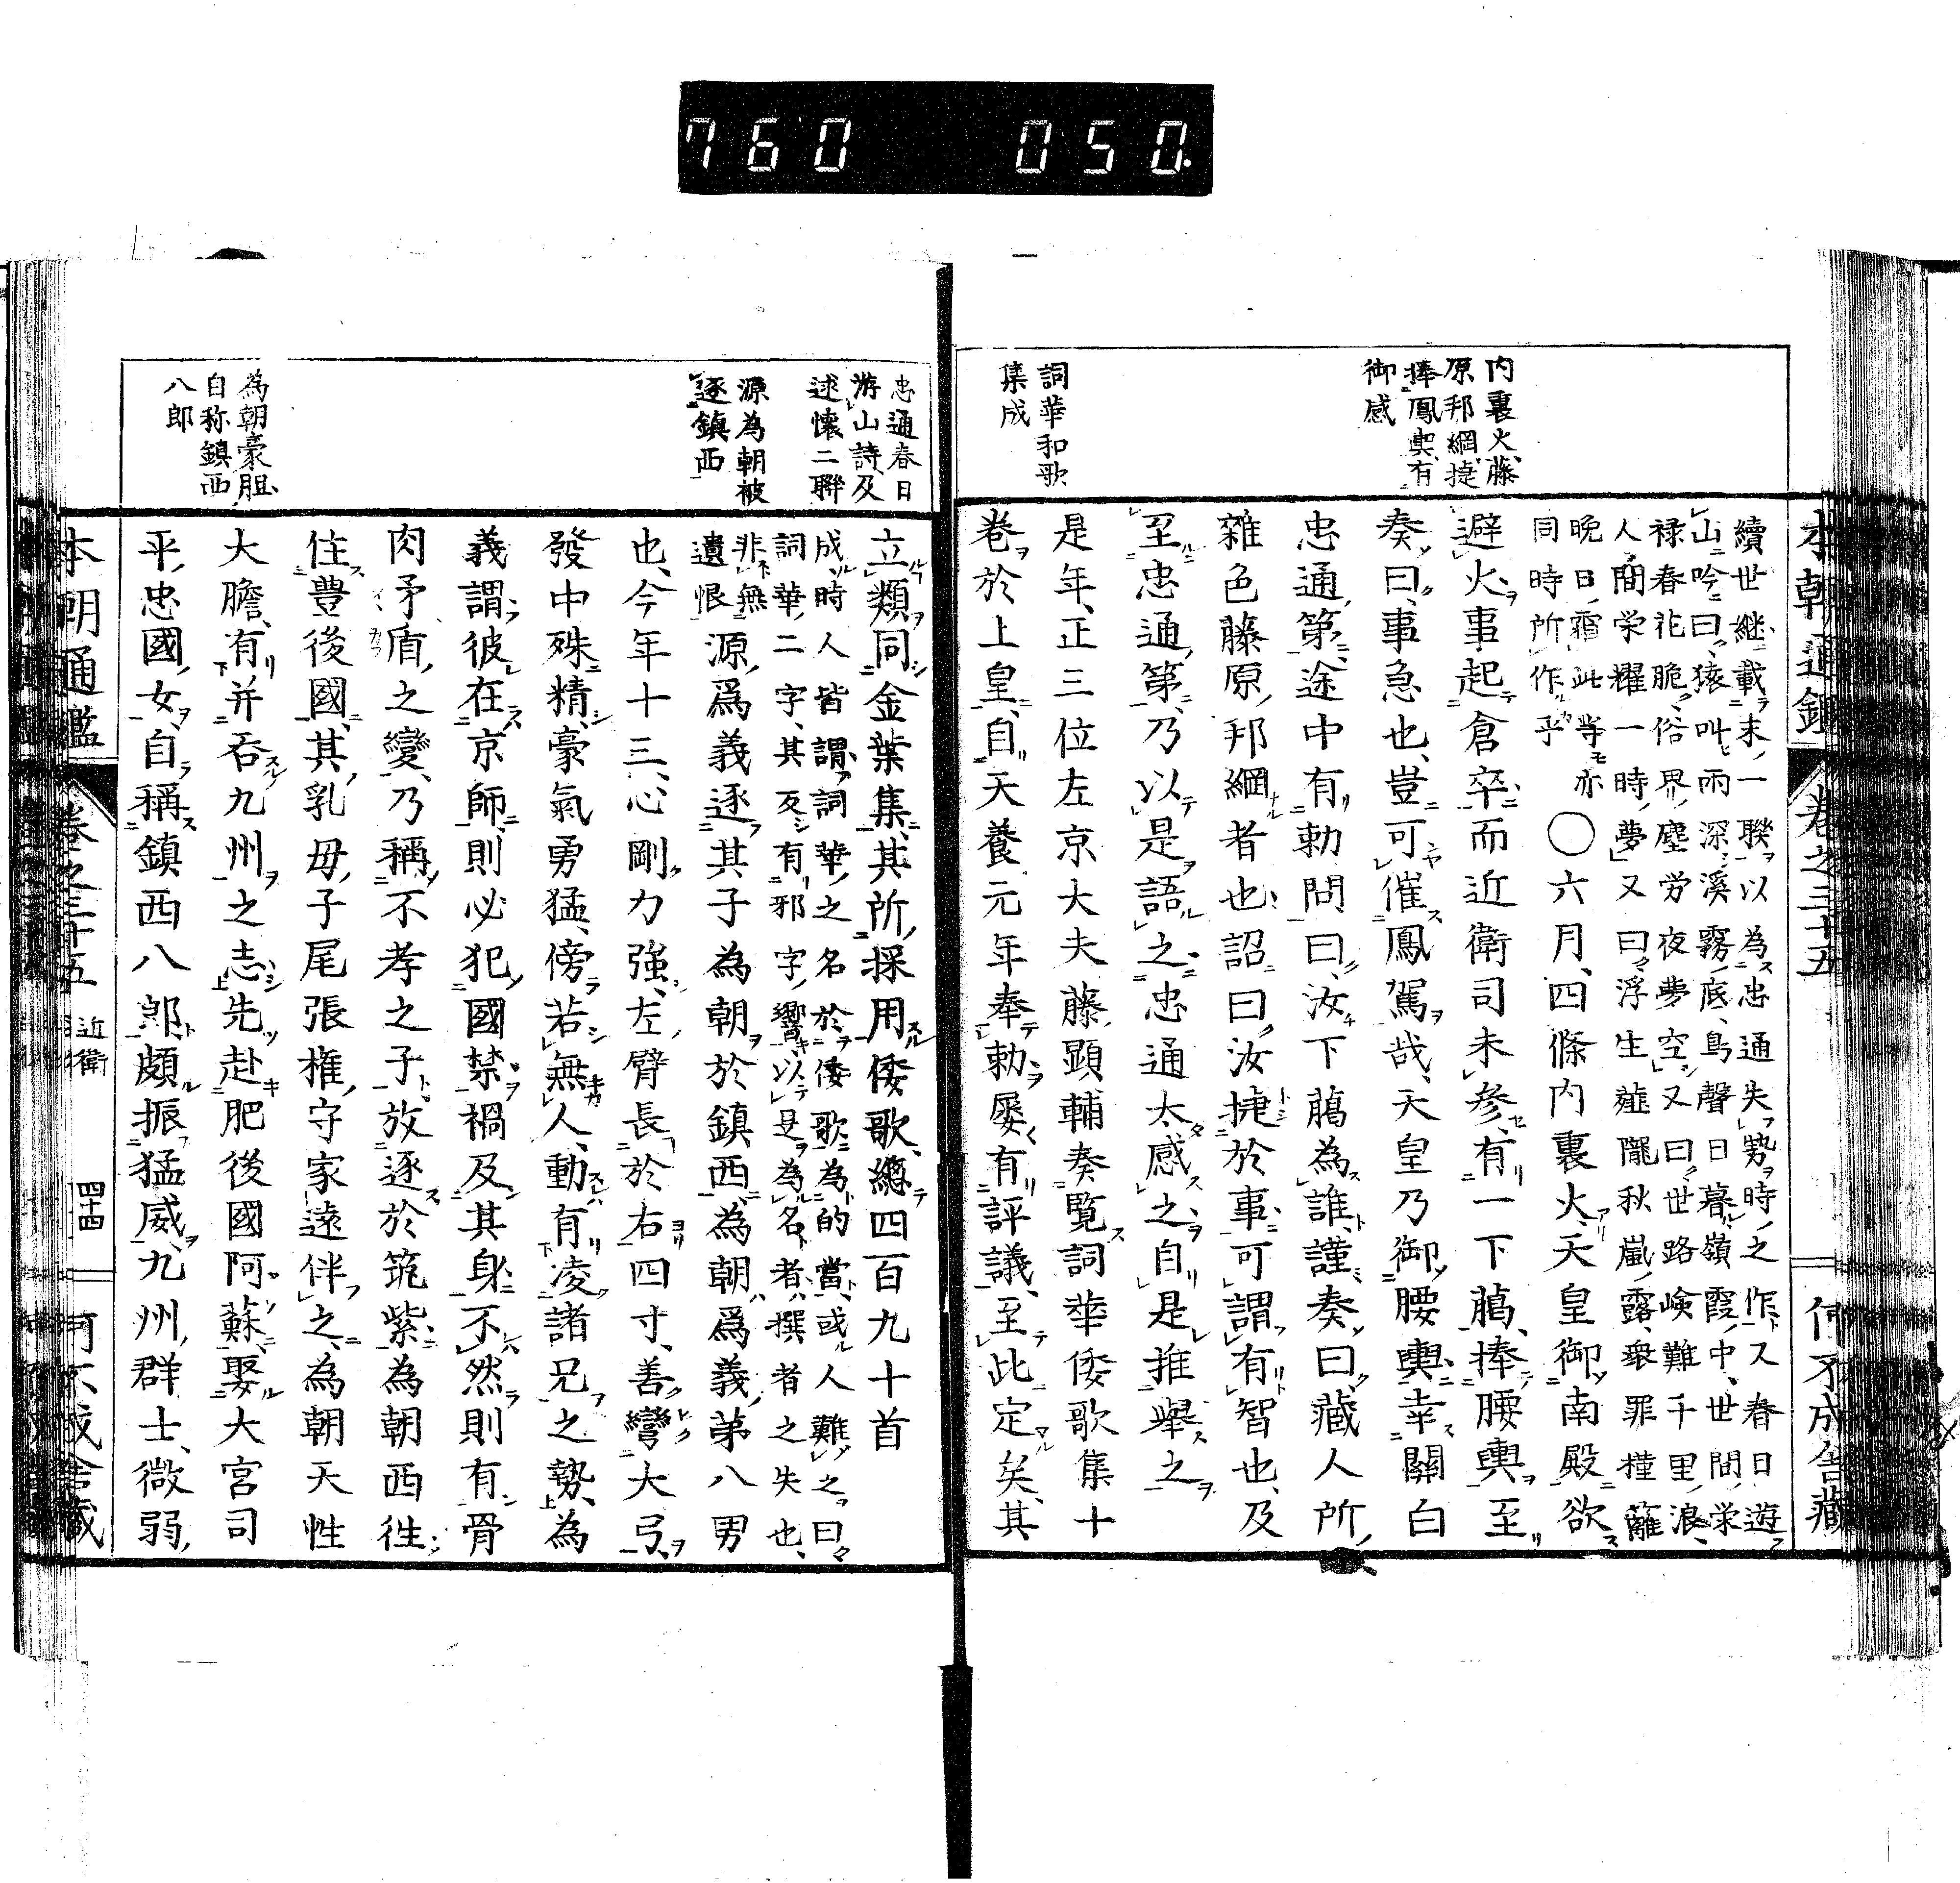 760 050
内裏火藤
原邦綱捷
捧鳳輿有
御感
詞華和歌
集成
本朝通鑑 卷之三十五 何不成舎藏
續世継載末一聯以為忠通失勢時之作又春日遊
山吟曰猿叫雨深溪霧底鳥聲日暮嶺霞中世間栄
禄春花脆俗界塵労夜夢空又曰世路嶮難千里浪
人間栄耀一時夢又曰浮生薤隴秋嵐露衆罪槿籬
晩日霜此等亦
同時所作乎
○六月四條内裏火天皇御南殿欲
避火事起倉卒而近衛司未參有一下﨟捧腰輿至
奏曰事急也豈可催鳳駕哉天皇乃御腰輿幸關白
忠通第途中有勅問曰汝下﨟為誰謹奏曰藏人所
雜色藤原邦綱者也詔曰汝捷於事可謂有智也及
至忠通第乃以是語之忠通太感之自是推舉之
是年正三位左京大夫藤顕輔奏覧詞華倭歌集十
巻於上皇自天養元年奉勅屡有評議至此定矣其
忠通春日
游山詩及
述懷二聯
源為朝被
逐鎮西
為朝豪胆
自称鎮西
八郎
立類同金葉集其所採用倭歌總四百九十首
成時人皆謂詞華之名於倭歌為的當或人難之曰
詞華二字其反有邪字響以是為名者撰者之失也
非無
遺恨
源爲義逐其子為朝於鎮西為朝爲義第八男
也今年十三心剛力強左臂長於右四寸善彎大弓
發中殊精豪氣勇猛傍若無人動有凌諸兄之勢為
義謂彼在京師則必犯國禁禍及其身不然則有骨
肉矛盾之變乃稱不孝之子放逐於筑紫為朝西往
住豊後國其乳母子尾張権守家遠伴之為朝天性
大膽有并呑九州之志先赴肥後國阿蘇娶大宮司
平忠國女自稱鎮西八郎頗振猛威九州群士微弱
本朝通鑑 卷之三十五 近衛 四十四 何不成舎藏